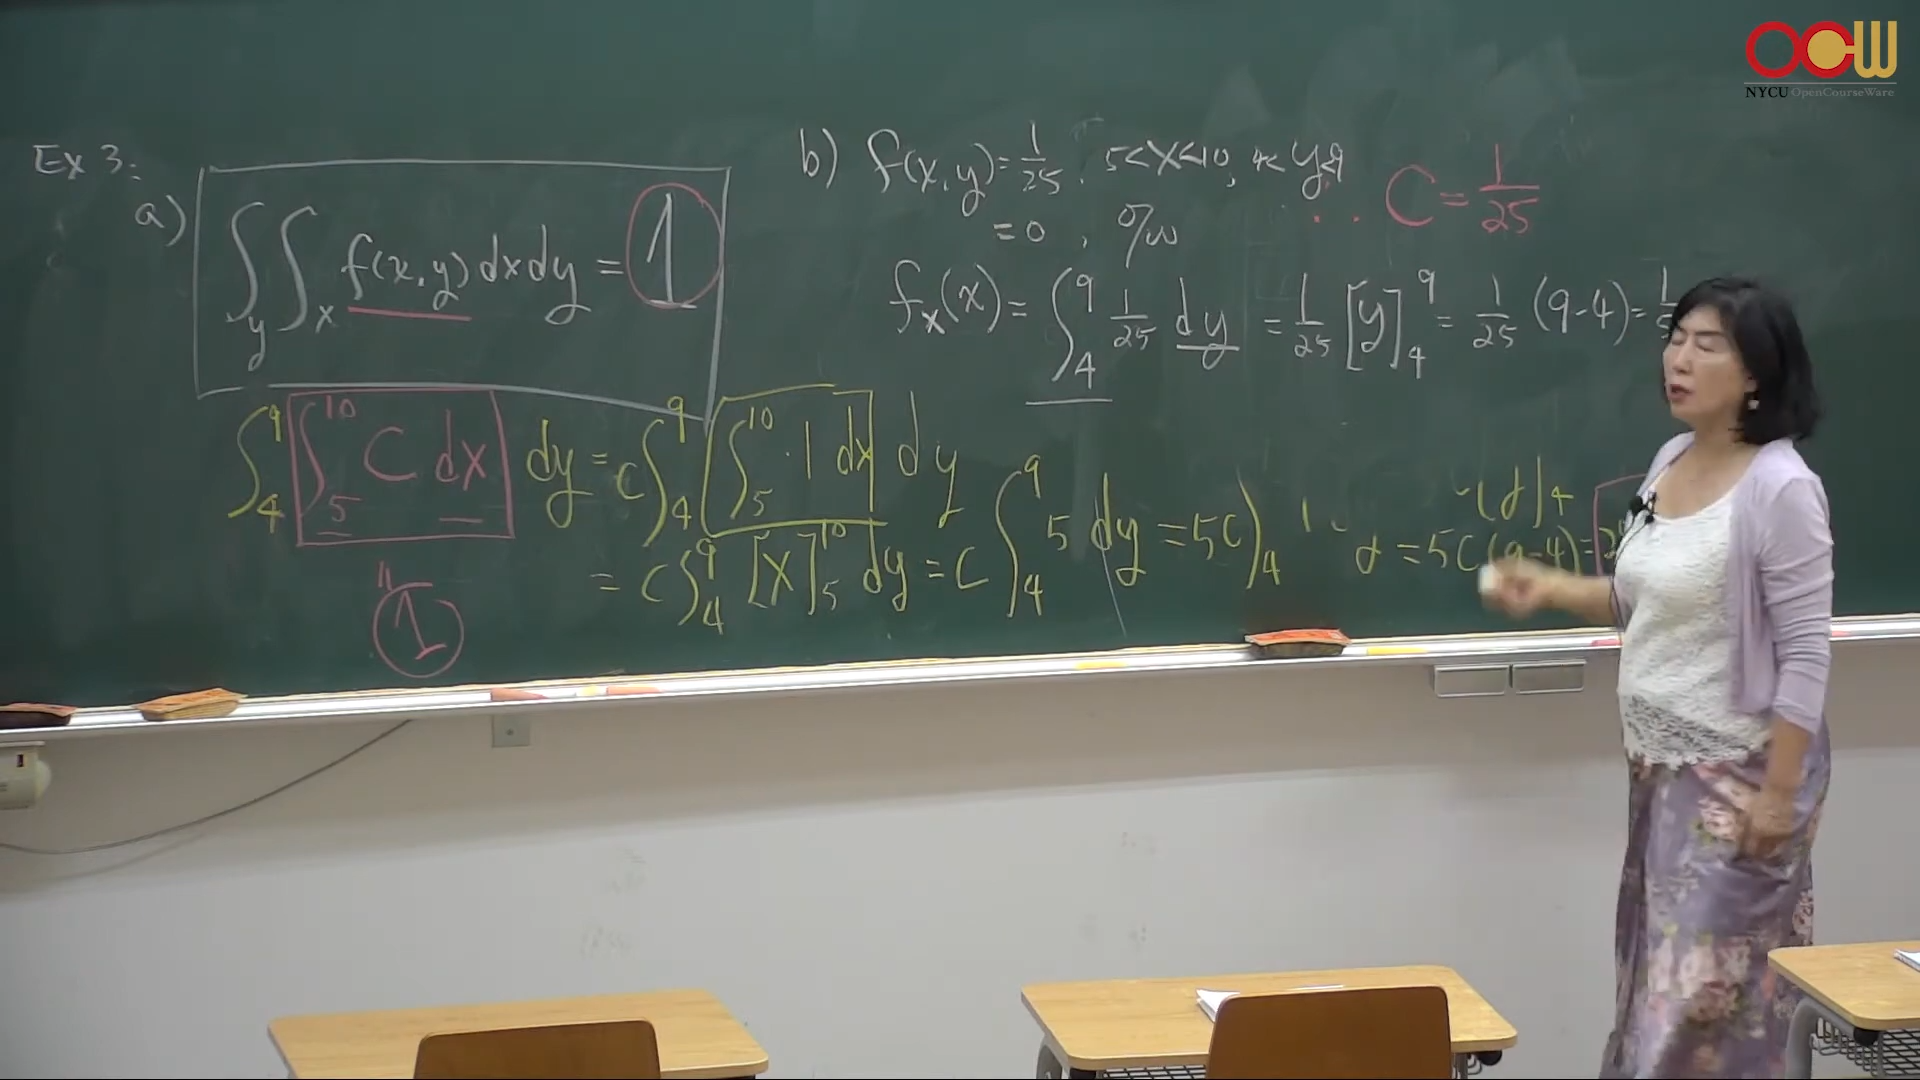 OCW
NYCU OpenCourseWare
Ex 3:
a)
∫y ∫x f(x,y) dx dy = 1
∫₄⁹ ∫₅¹⁰ C dx dy = C ∫₄⁹ ∫₅¹⁰ 1 dx dy
= C ∫₄⁹ [x]₅¹⁰ dy = C ∫₄⁹ 5 dy = 5C
= 5C(9-4) =
" 1
b) f(x,y) = 1/25, 5<x<10, 4<y<9
= 0, o/w
∴ C = 1/25
fx(x) = ∫₄⁹ 1/25 dy = 1/25 [y]₄⁹ = 1/25 (9-4) =